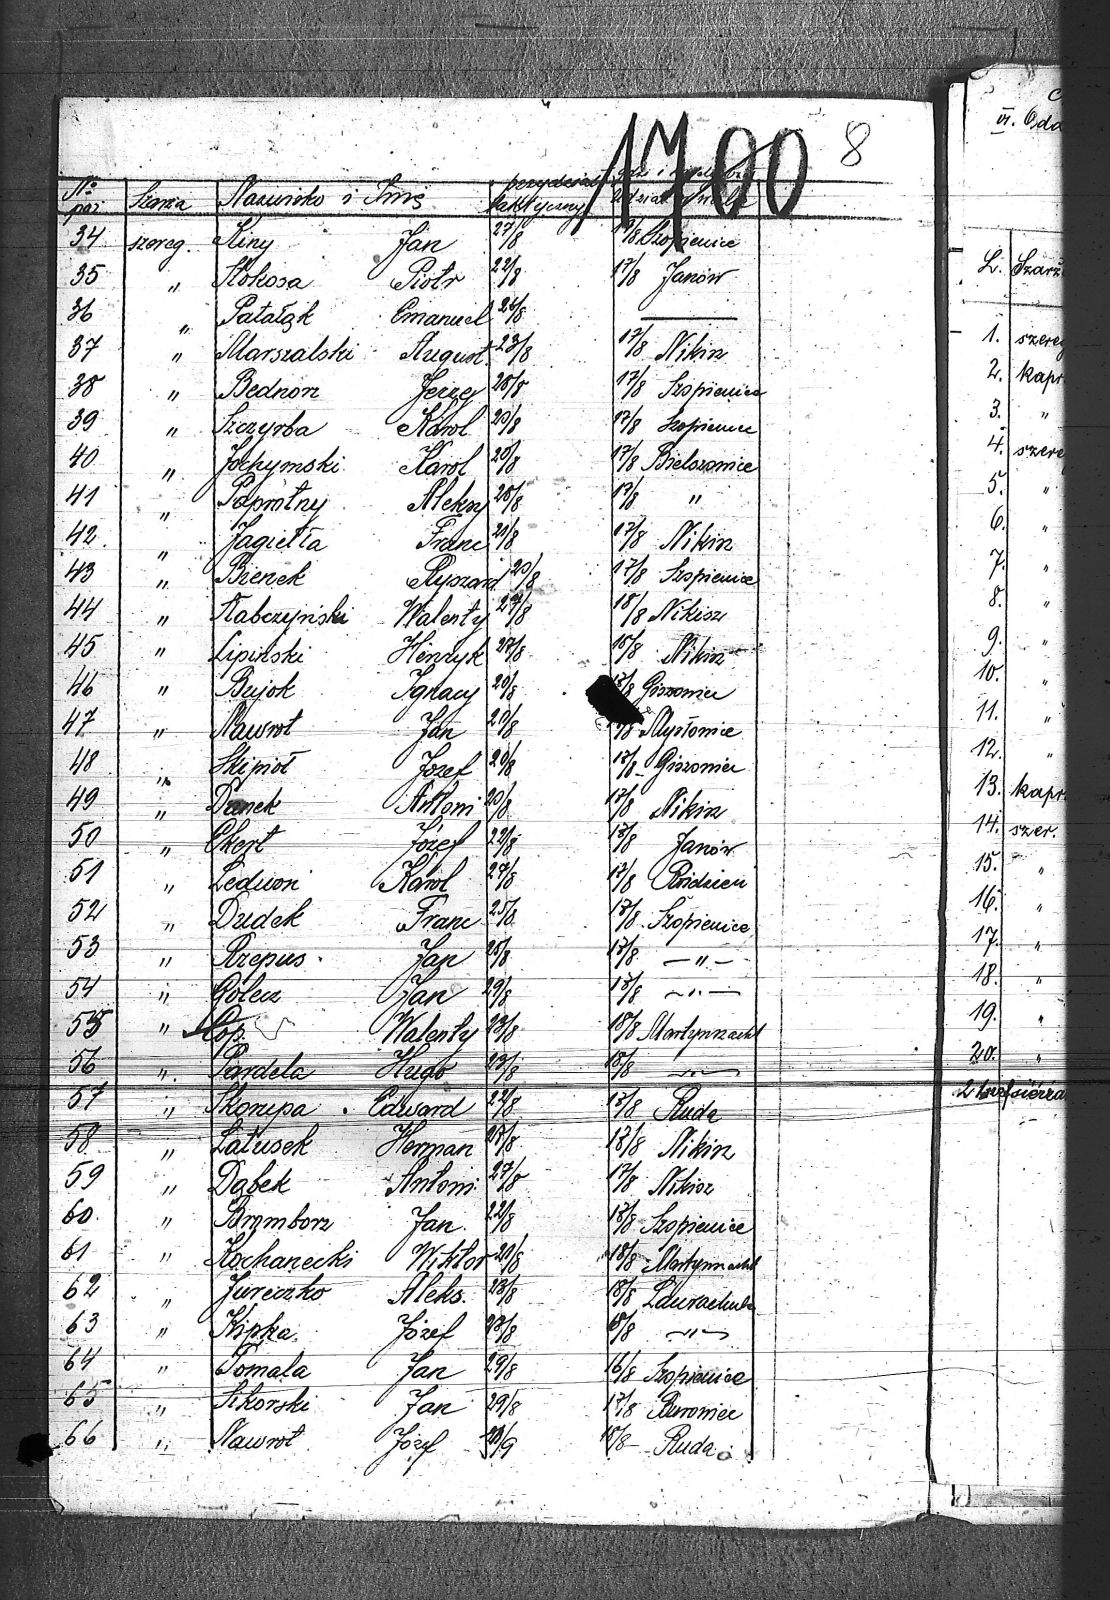 1700 8
No poz. Szarża Nazwisko i Imię przydział taktyczny gdzie i
34 szereg. Kiny Jan 27/8 17/8 Szopienice
35 " Kokosa Piotr 22/8 17/8 Janów
36 " Patałąk Emanuel 26/8 —
37 " Marszalski August 23/8 17/8 Nikisz
38 " Bednorz Jerzey 28/8 17/8 Szopienice
39 " Szczyrba Karol 20/8 17/8 Szopienice
40 " Jochymski Karol 20/8 17/8 Bielszowice
41 " Paprotny Aleksy 28/8 17/8 "
42 " Jagiełła Franc 21/8 17/8 Nikisz
43 " Bienek Ryszard 20/8 17/8 Szopienice
44 " Rabczyński Walenty 27/8 18/8 Nikisz
45 " Lipiński Henryk 27/8 18/8 Nikisz
46 " Bujok Ignacy 20/8 Giszowiec
47 " Nawrot Jan 20/8 Mysłowice
48 " Skipioł Józef 20/8 17/8 Giszowiec
49 " Danek Antoni 20/8 17/8 Nikisz
50 " Ekert Józef 22/8 17/8 Janów
51 " Ledwoń Karol 27/8 17/8 Roździeń
52 " Dudek Franc 25/8 17/8 Szopienice
53 " Rzepus Jan 28/8 17/8 — " —
54 " Golecz Jan 29/8 17/8 — " —
55 " Kop. Walenty 23/8 18/8 Martynszacht
56 " Pardela Hugo 23/8 18/8 — " —
57 " Skorupa Edward 22/8 17/8 Ruda
58 " Latusek Herman 27/8 17/8 Nikisz
59 " Dąbek Antoni 27/8 17/8 Nikisz
60 " Bramborz Jan 22/8 17/8 Szopienice
61 " Kochanecki Wiktor 20/8 18/8 Martynszacht
62 " Jureczko Aleks. 23/8 18/8 Laurachuta
63 " Kipka Józef 28/8 18/8 — " —
64 " Tomala Jan 29/8 16/8 Szopienice
65 " Sikorski Jan 29/8 17/8 Burowiec
66 " Nawrot Józef 20/9 18/8 Ruda
VI. Oda
L. Szarż
1. szereg
2. kapr.
3. "
4. szereg
5. "
6. "
7. "
8. "
9. "
10. "
11. "
12. "
13. kapr.
14. szer.
15. "
16. "
17. "
18. "
19. "
20. "